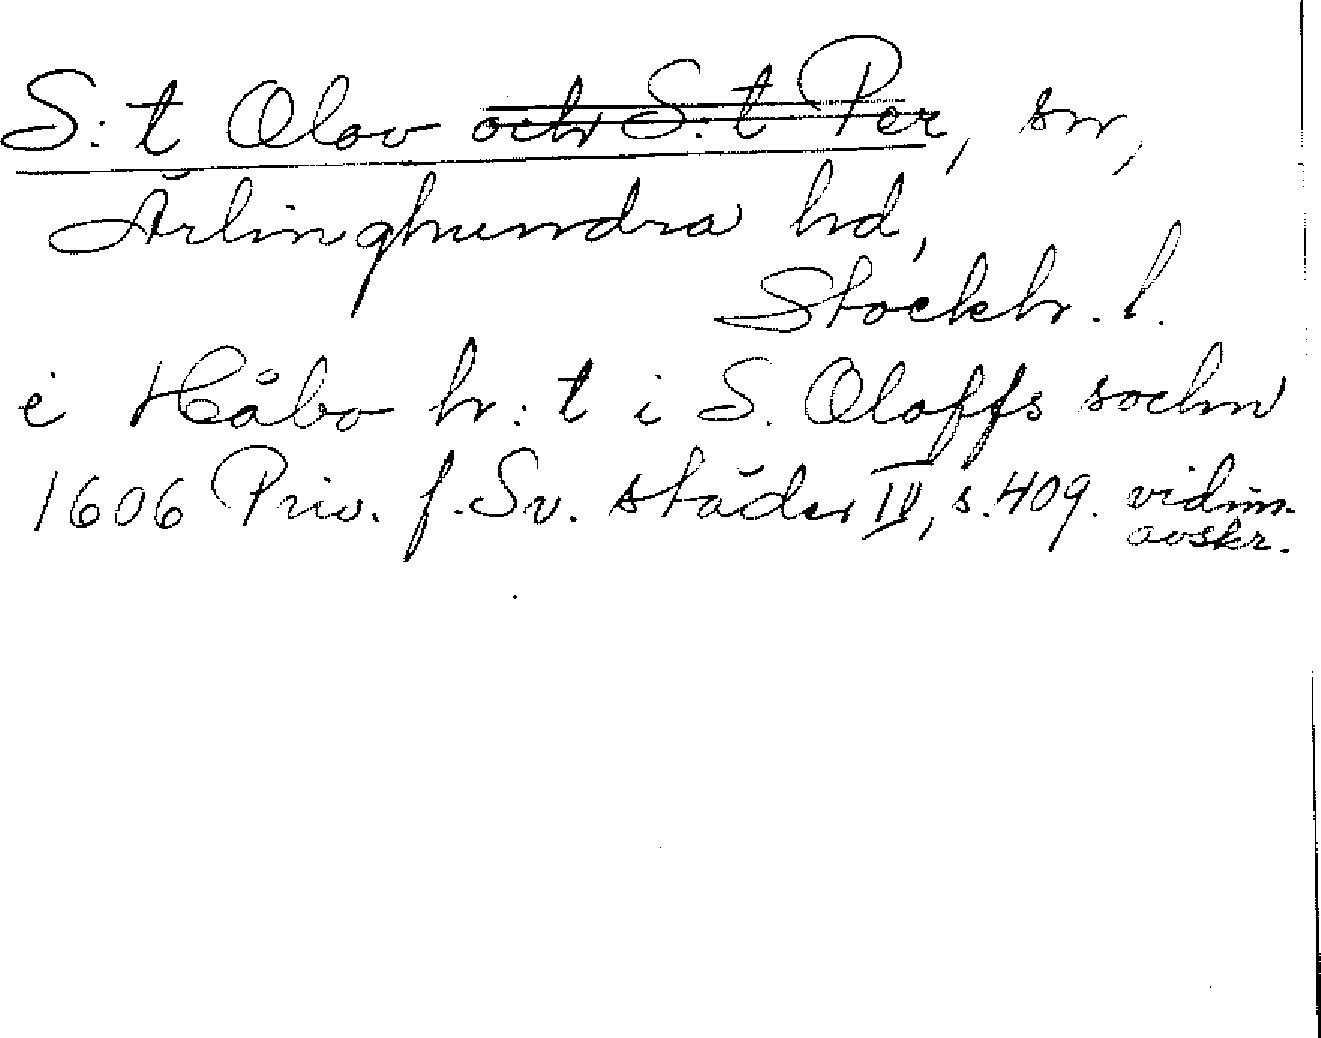 S:t Olov och S:t Per, sn,
Ärlinghundra hd,
Stockh. l.
i Håbo hr:t i S. Oloffs sochn
1606 Priv. f. Sv. städer IV, s. 409. vidim.
avskr.